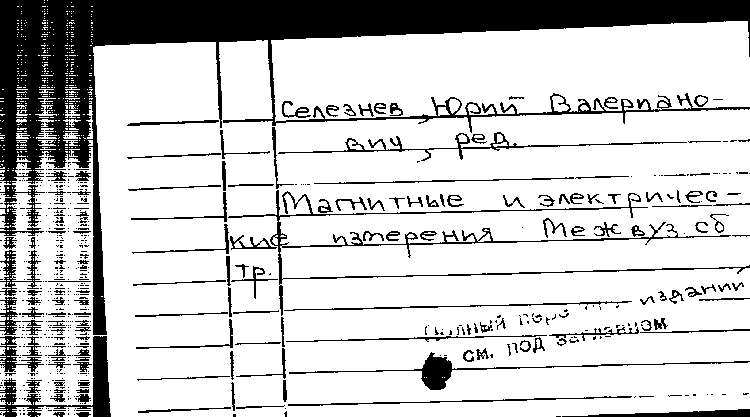 Селезнев, Юрий Валериано-
вич, ред.
Магнитные и электричес-
кие измерения. Межвуз. сб
тр.
Полный пере изданий
см. под заглавием